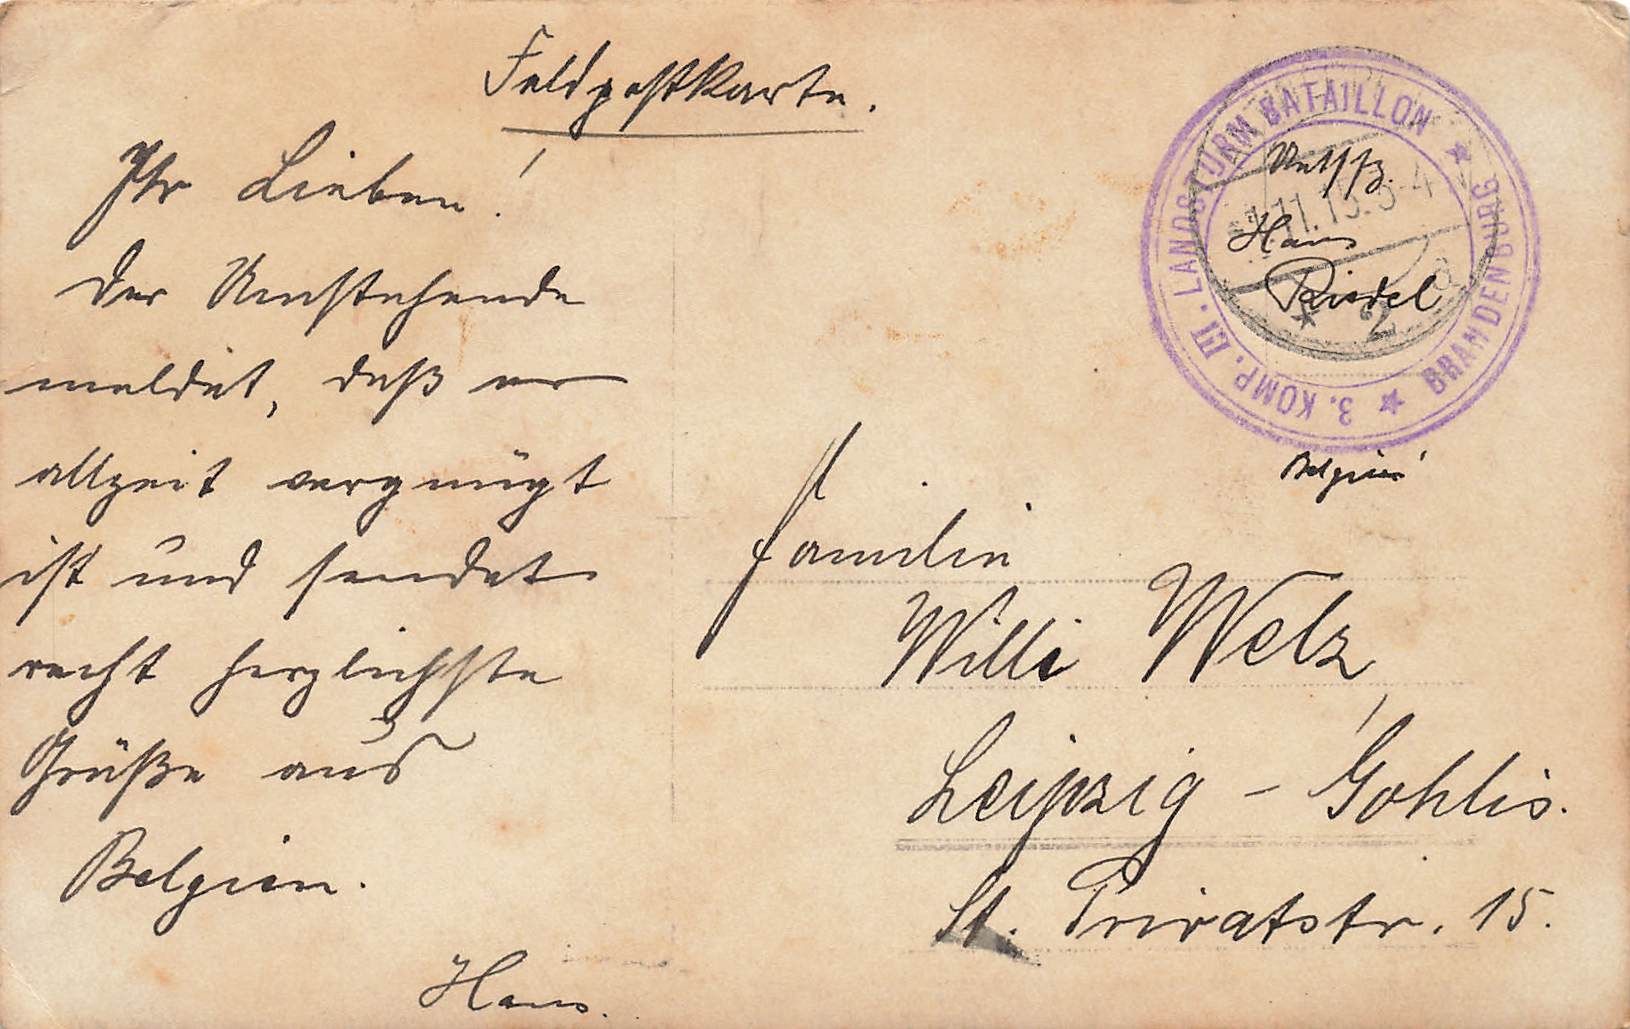 Feldpostkarte.
Ihr Lieben!
Der Umstehende
meldet, daß er
allzeit vergnügt
ist und sendet
recht herzlichste
Grüße aus
Belgien.
Hans.
3. KOMP. III. LANDSTURM BATAILLON ★
BRANDENBURG. ★
11.15. 3-4
★ 2 a
Untffz.
Hans
Riedel
Belgien!
Familie
Willi Welz,
Leipzig - Gohlis.
St. Privatstr. 15.